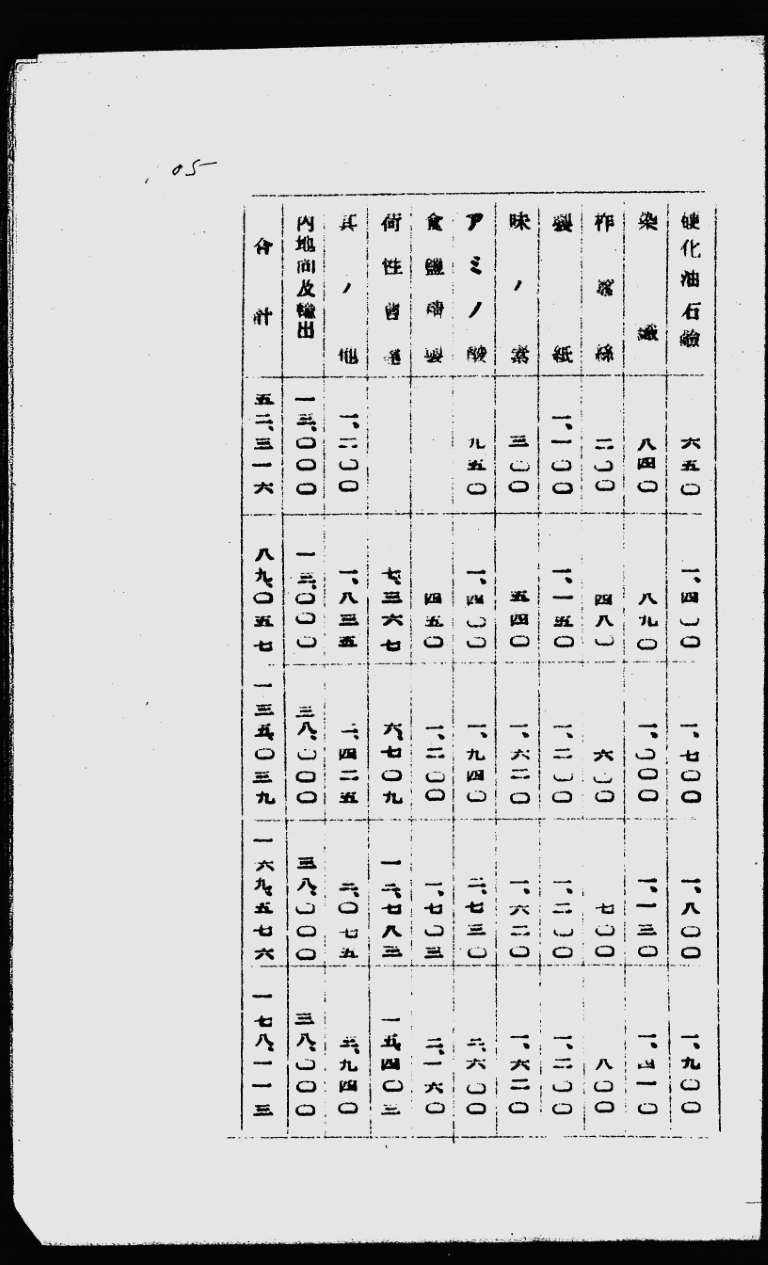 05
硬化油石鹼 六五〇 一、四〇〇 一、七〇〇 一、八〇〇 一、九〇〇
染織 八四〇 八九〇 一、〇〇〇 一、一三〇 一、四一〇
柞蠶絲 二〇〇 四八〇 六〇〇 七〇〇 八〇〇
製紙 一、一〇〇 一、一五〇 一、二〇〇 一、二〇〇 一、二〇〇
味ノ素 三〇〇 五四〇 一、六二〇 一、六二〇 一、六二〇
アミノ酸 九五〇 一、四〇〇 一、九四〇 二、七三〇 三、六〇〇
食鹽精製 四五〇 一、二〇〇 一、七〇三 二、一六〇
苛性曹達 七、三六七 六、七〇九 一二、七八三 一五、四〇三
其ノ他 一、二〇〇 一、八三五 一、四二五 二、〇七五 三、九四〇
内地向及輸出 一三、〇〇〇 一三、〇〇〇 三八、〇〇〇 三八、〇〇〇 三八、〇〇〇
合計 五二、三一六 八九、〇五七 一三五、〇三九 一六九、五七六 一七八、一一三